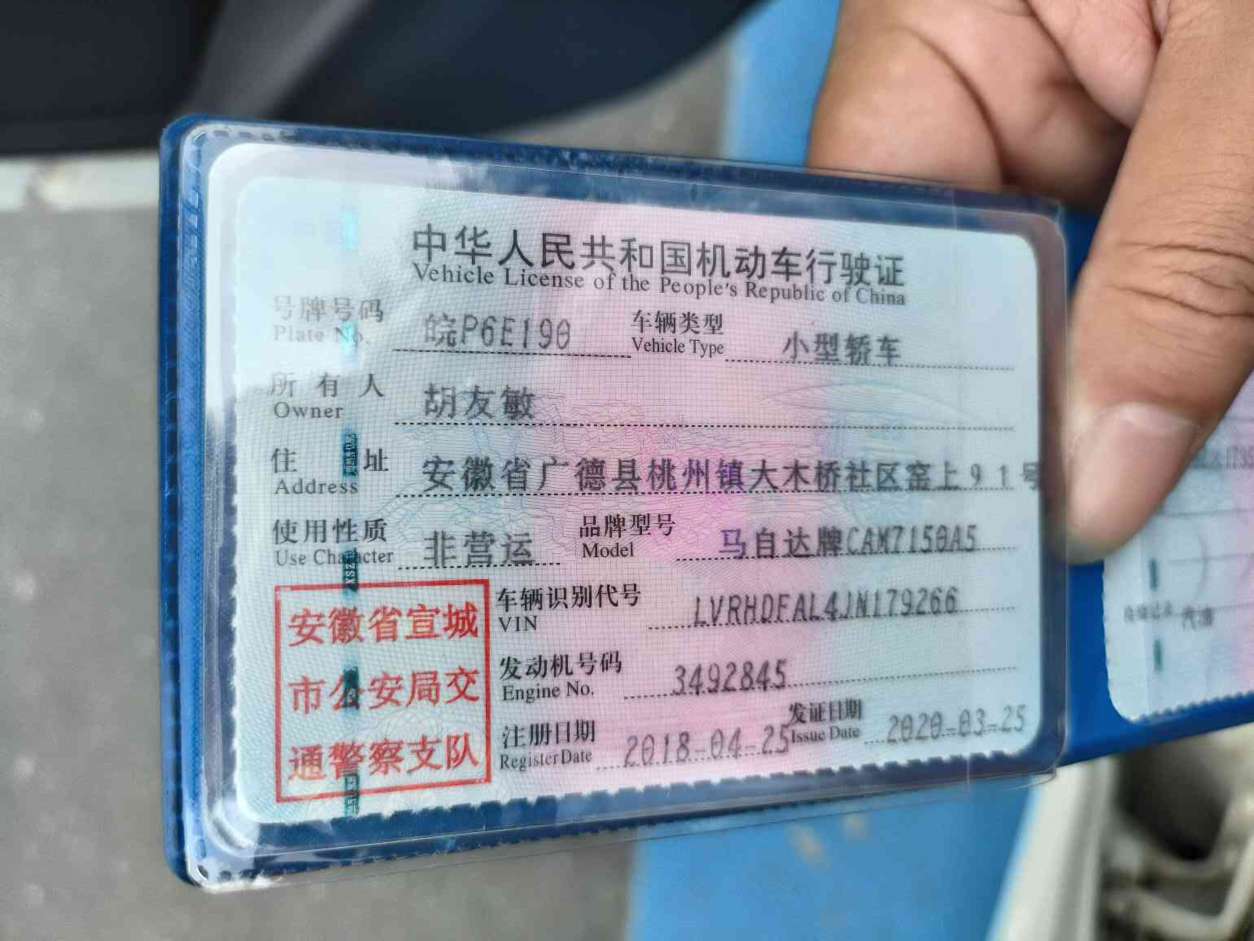 中华人民共和国机动车行驶证
Vehicle License of the People's Republic of China
号牌号码 皖P6E190 车辆类型 小型轿车
Plate No. Vehicle Type
所有人 胡友敏
Owner
住址 安徽省广德县桃州镇大木桥社区窑上91号
Address
使用性质 非营运 品牌型号 马自达牌CAM7150A5
Use Character Model
安徽省宣城
市公安局交
通警察支队
车辆识别代号 LVRHDFAL4JN179266
VIN
发动机号码 3492845
Engine No.
注册日期 2018-04-25 发证日期 2020-03-25
Register Date Issue Date